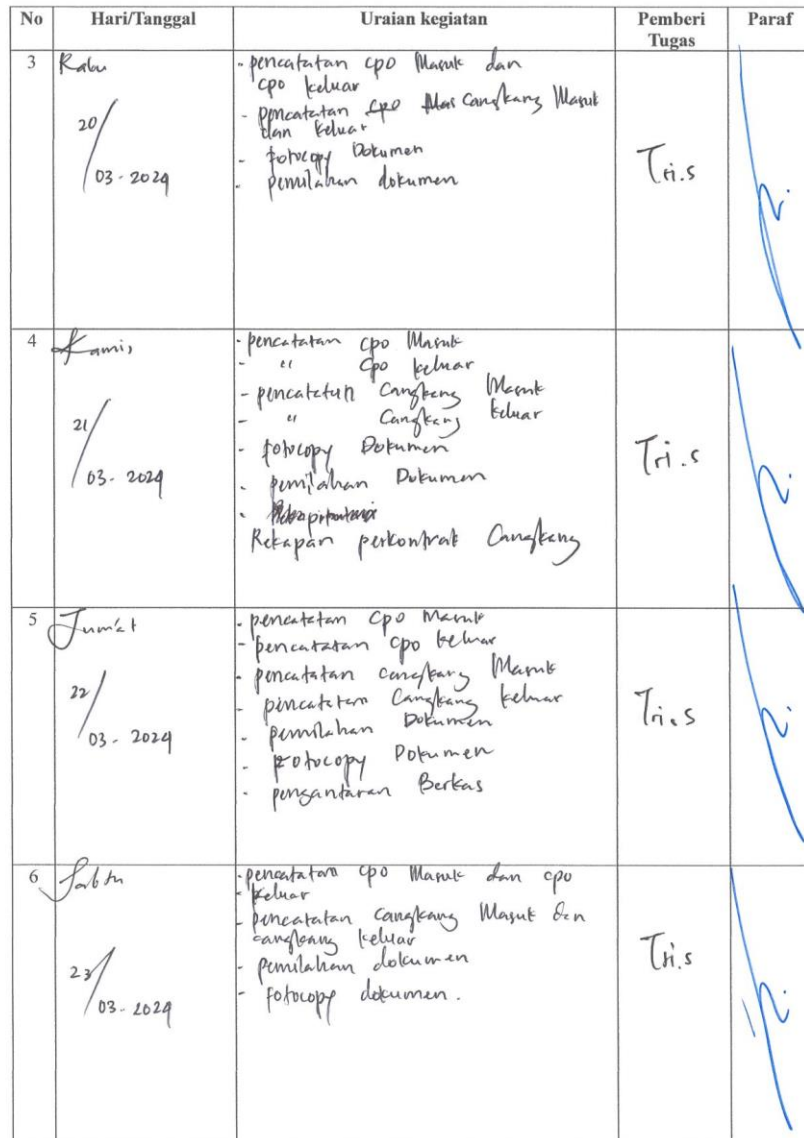 No Hari/Tanggal Uraian kegiatan Pemberi Tugas Paraf
3 Rabu
20/03-2024
- pencatatan cpo Masuk dan
cpo keluar
- pencatatan cpo Mas Cangkang Masuk
dan keluar
- fotocopy Dokumen
- pemilahan dokumen
Tri.s
4 Kamis
21/03-2024
- pencatatan cpo Masuk
- " cpo keluar
- pencatatan Cangkang Masuk
- " Cangkang keluar
- fotocopy Dokumen
- pemilahan Dokumen
-
Rekapan perkontrak Cangkang
Tri.s
5 Jum'at
22/03-2024
- pencatatan cpo Masuk
- pencatatan cpo keluar
- pencatatan cangkang Masuk
- pencatatan Cangkang keluar
- pemilahan Dokumen
- Fotocopy Dokumen
- pengantaran Berkas
Tri.s
6 Sabtu
23/03-2024
- pencatatan cpo Masuk dan cpo
- keluar
- pencatatan cangkang Masuk dan
cangkang keluar
- pemilahan dokumen
- fotocopy dokumen.
Tri.s